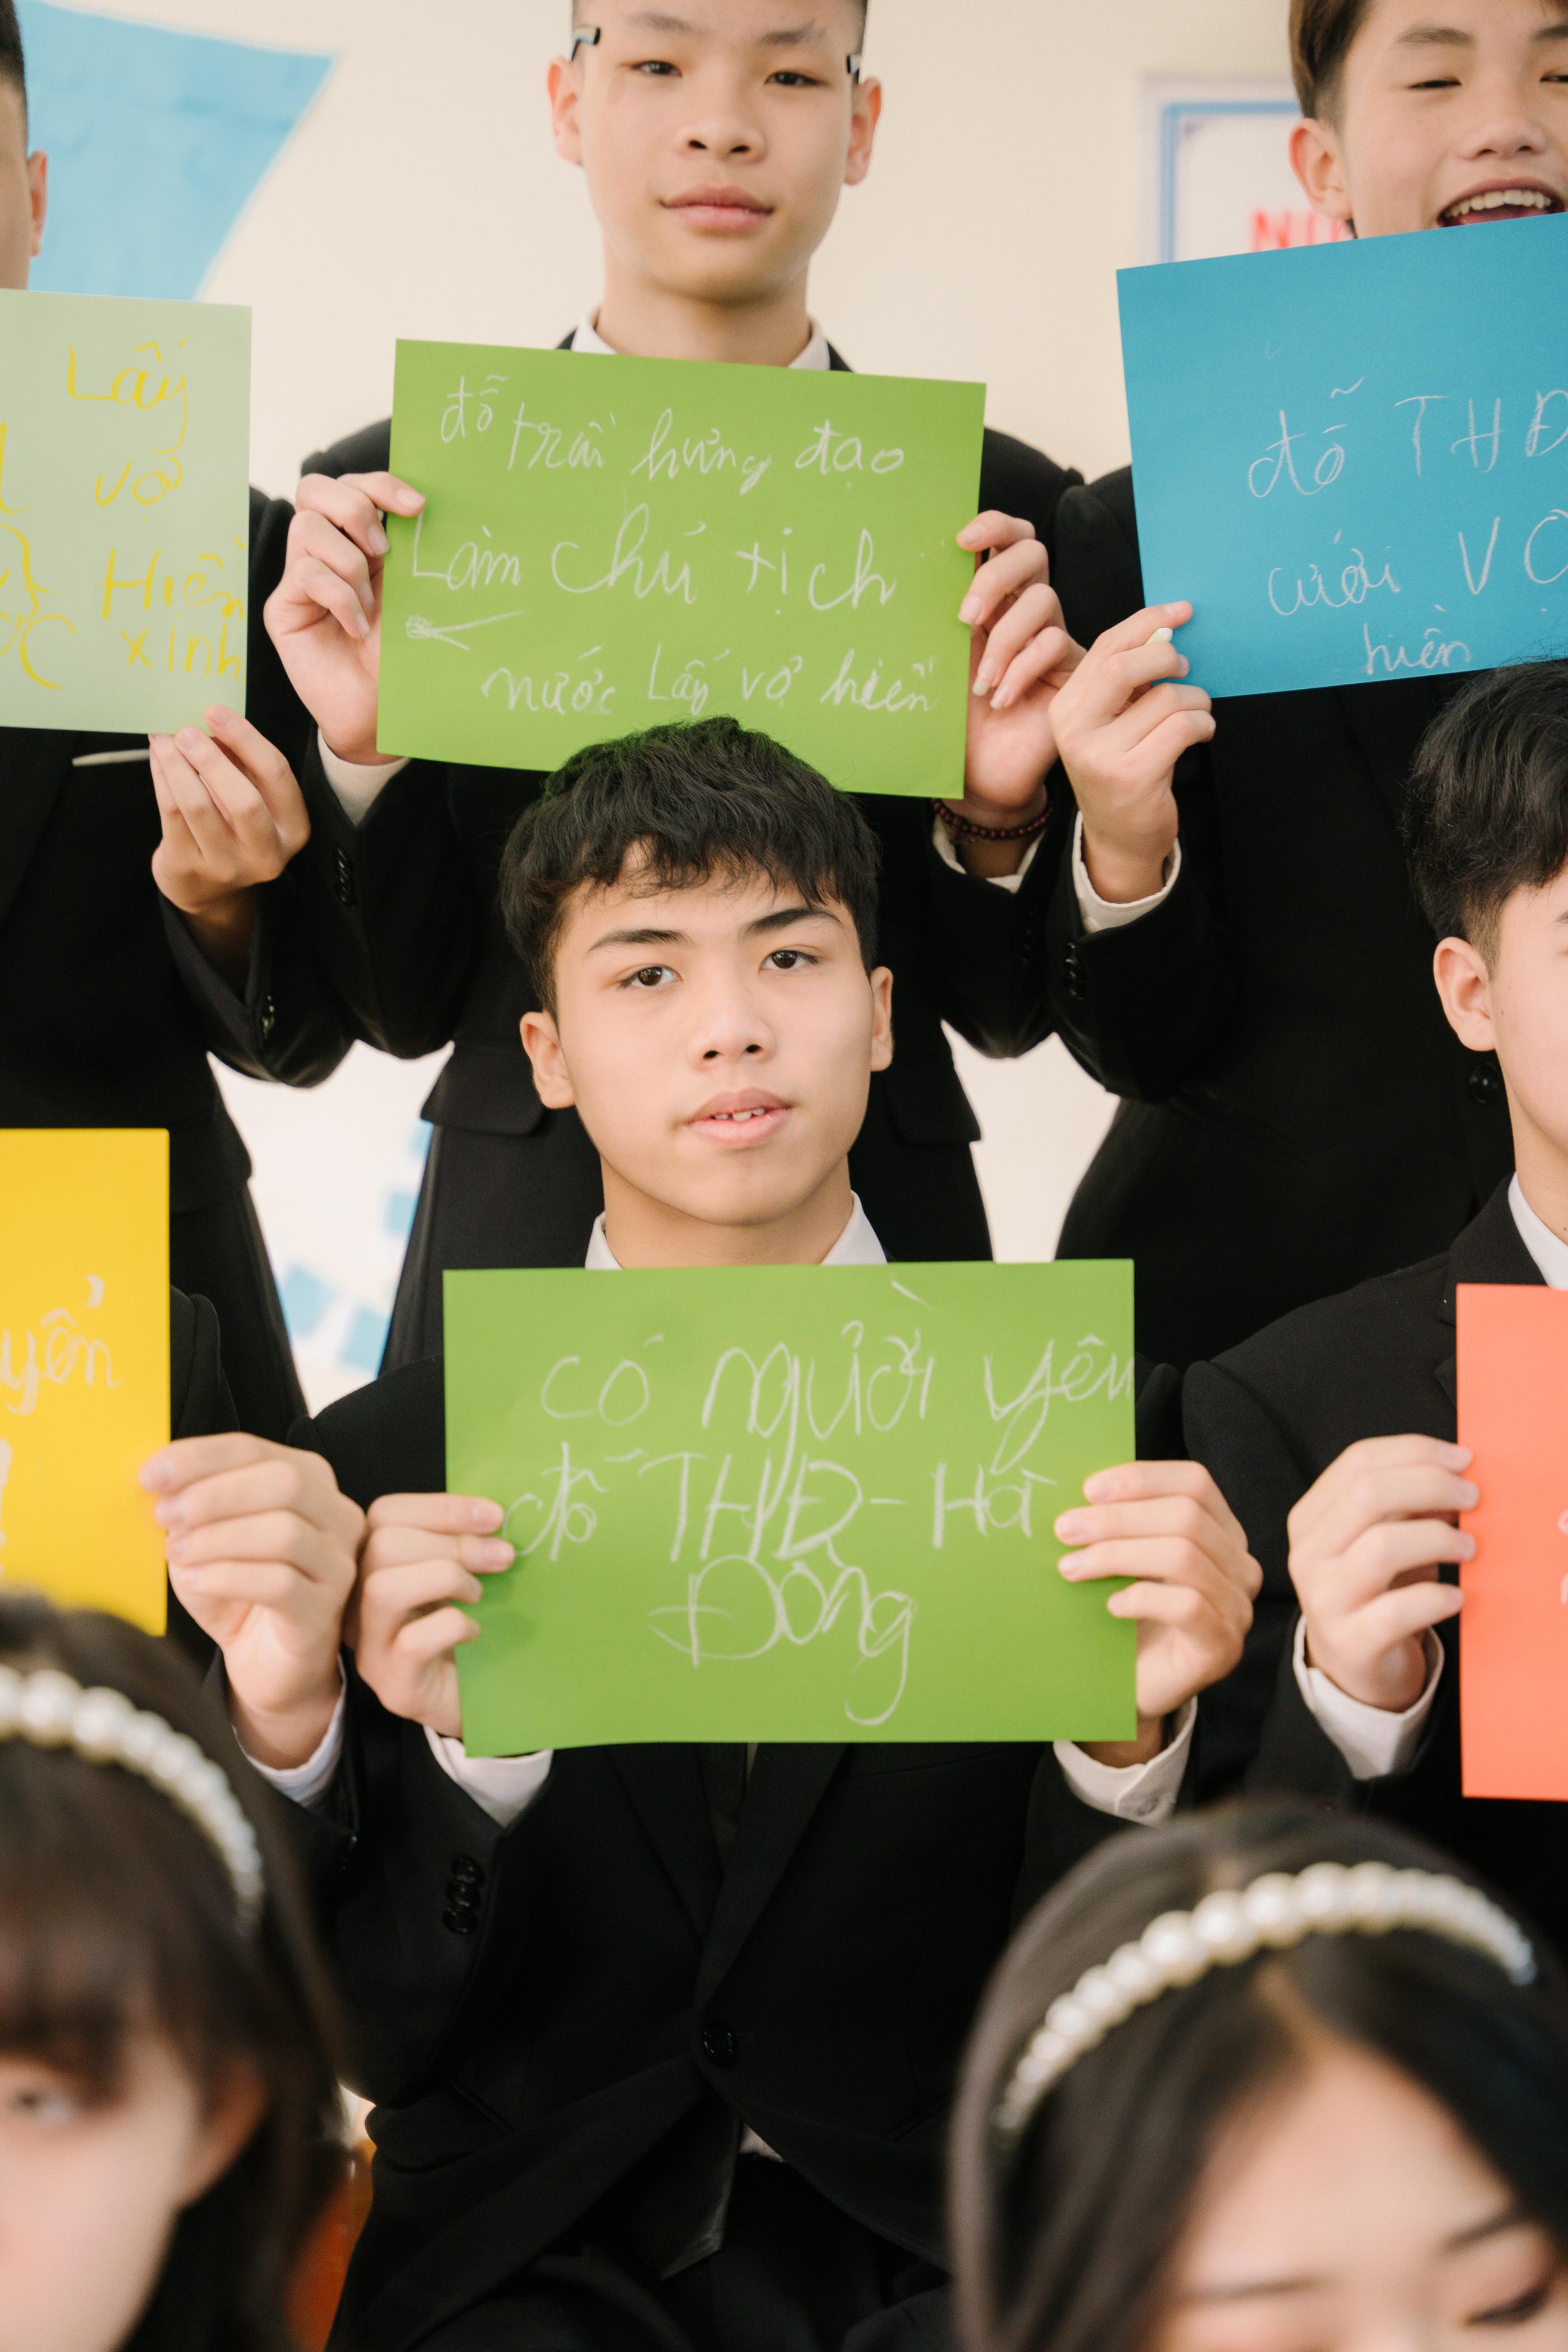 Lấy
vợ
Hiền
xinh
đỗ trần hưng đạo
Làm chủ tịch
nước Lấy vợ hiền
đỗ THĐ
cưới VỢ
hiền
yển
có người yêu
đỗ THĐ - Hà
Đông